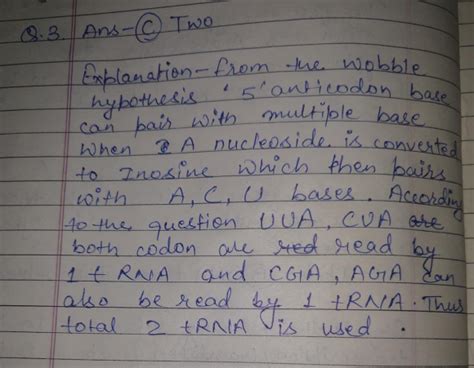 Q.3. Ans-(C) Two
Explanation - From the wobble
hypothesis ' 5' anticodon base
can pair with multiple base
when A nucleoside is converted
to Inosine which then pairs
with A, C, U bases. According
to the question UUA, CUA are
both codon are red read by
1 t RNA and CGA, AGA can
also be read by 1 tRNA. Thus
total 2 tRNA is used .